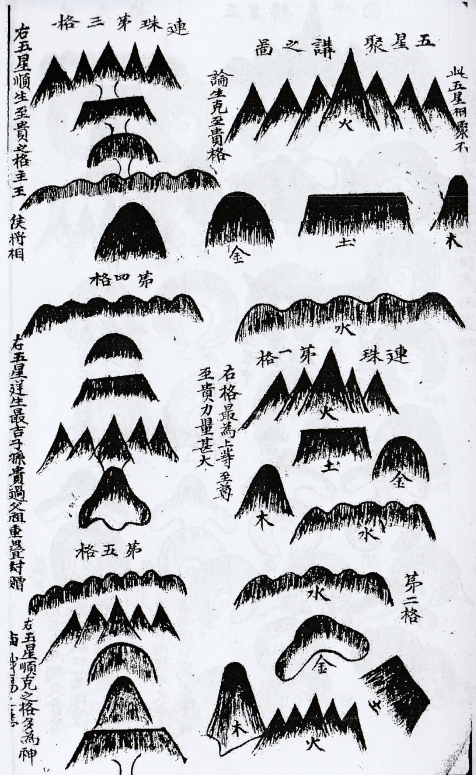 此五星相聚不
五星聚講之圖
論生克至貴格
火
木
土
金
水
連珠第一格
右格最為上等至尊
至貴力量甚大
火
土
金
木
水
第二格
水
金
木
火
連珠第三格
右五星順生至貴之格主王侯將相
第四格
右五星逆生最吉子孫貴過父祖重疊封贈
第五格
右五星順克之格多為神